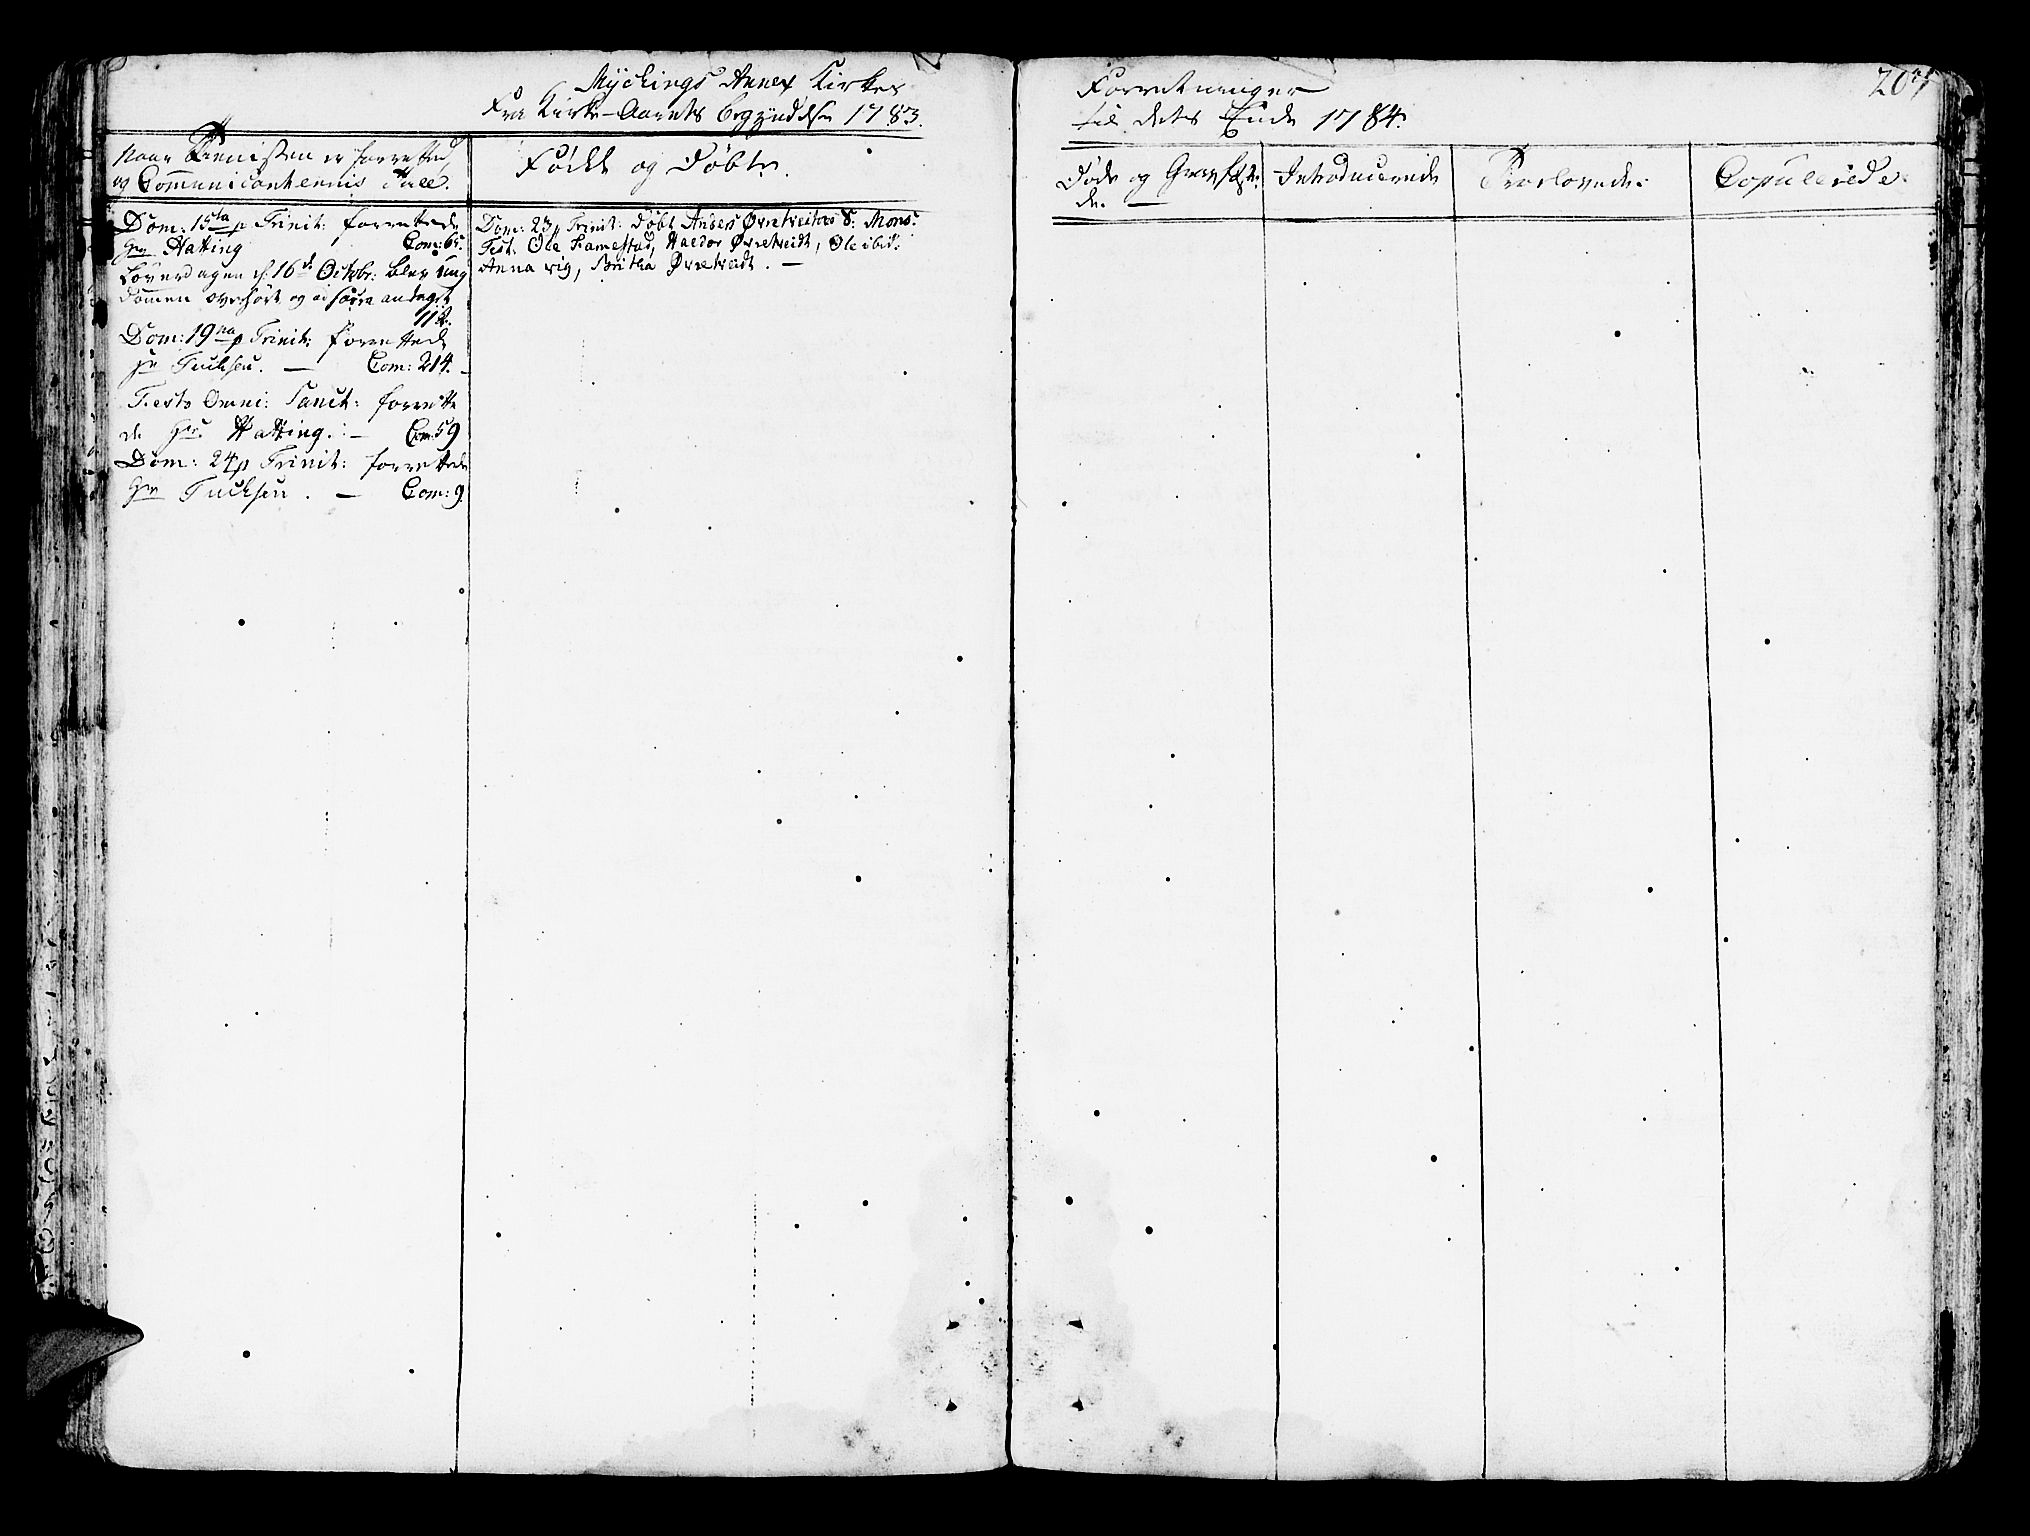 Mychings Annex Kirkes
Fra Kirke-Aarets begyndelse 1783.
Forretninger
til dets Ende 1784.
207
Naar Tienisten er forrettet,
og Communicanternis Tall.
Fødde og Døbte.
Døde og Gravfæste-
de. —
Introducerede
Trorlovede.
Copulerede.
Dom: 15ta p Trinit: forrettede
Hr Hatting Com: 65.
Løverdagen d: 16de Octobr: blev ung
dommen overhørt og antaget
112.
Dom: 19na p Trinit: forrettede
Hr Tuchsen. — Com: 214.
Festo Omni: Sanct: forrette
de Hr: Hatting. — Com: 59
Dom: 24 p Trinit: forrettede
Hr Tuchsen. — Com: 9.
Dom: 23 p Trinit: Døbt Anders Øvretveitens S: Mons:
Test: Ole Ramestad, Haldor Øvretveidt, Ole ibid:
Anna vig, Britha Øvretveidt. —